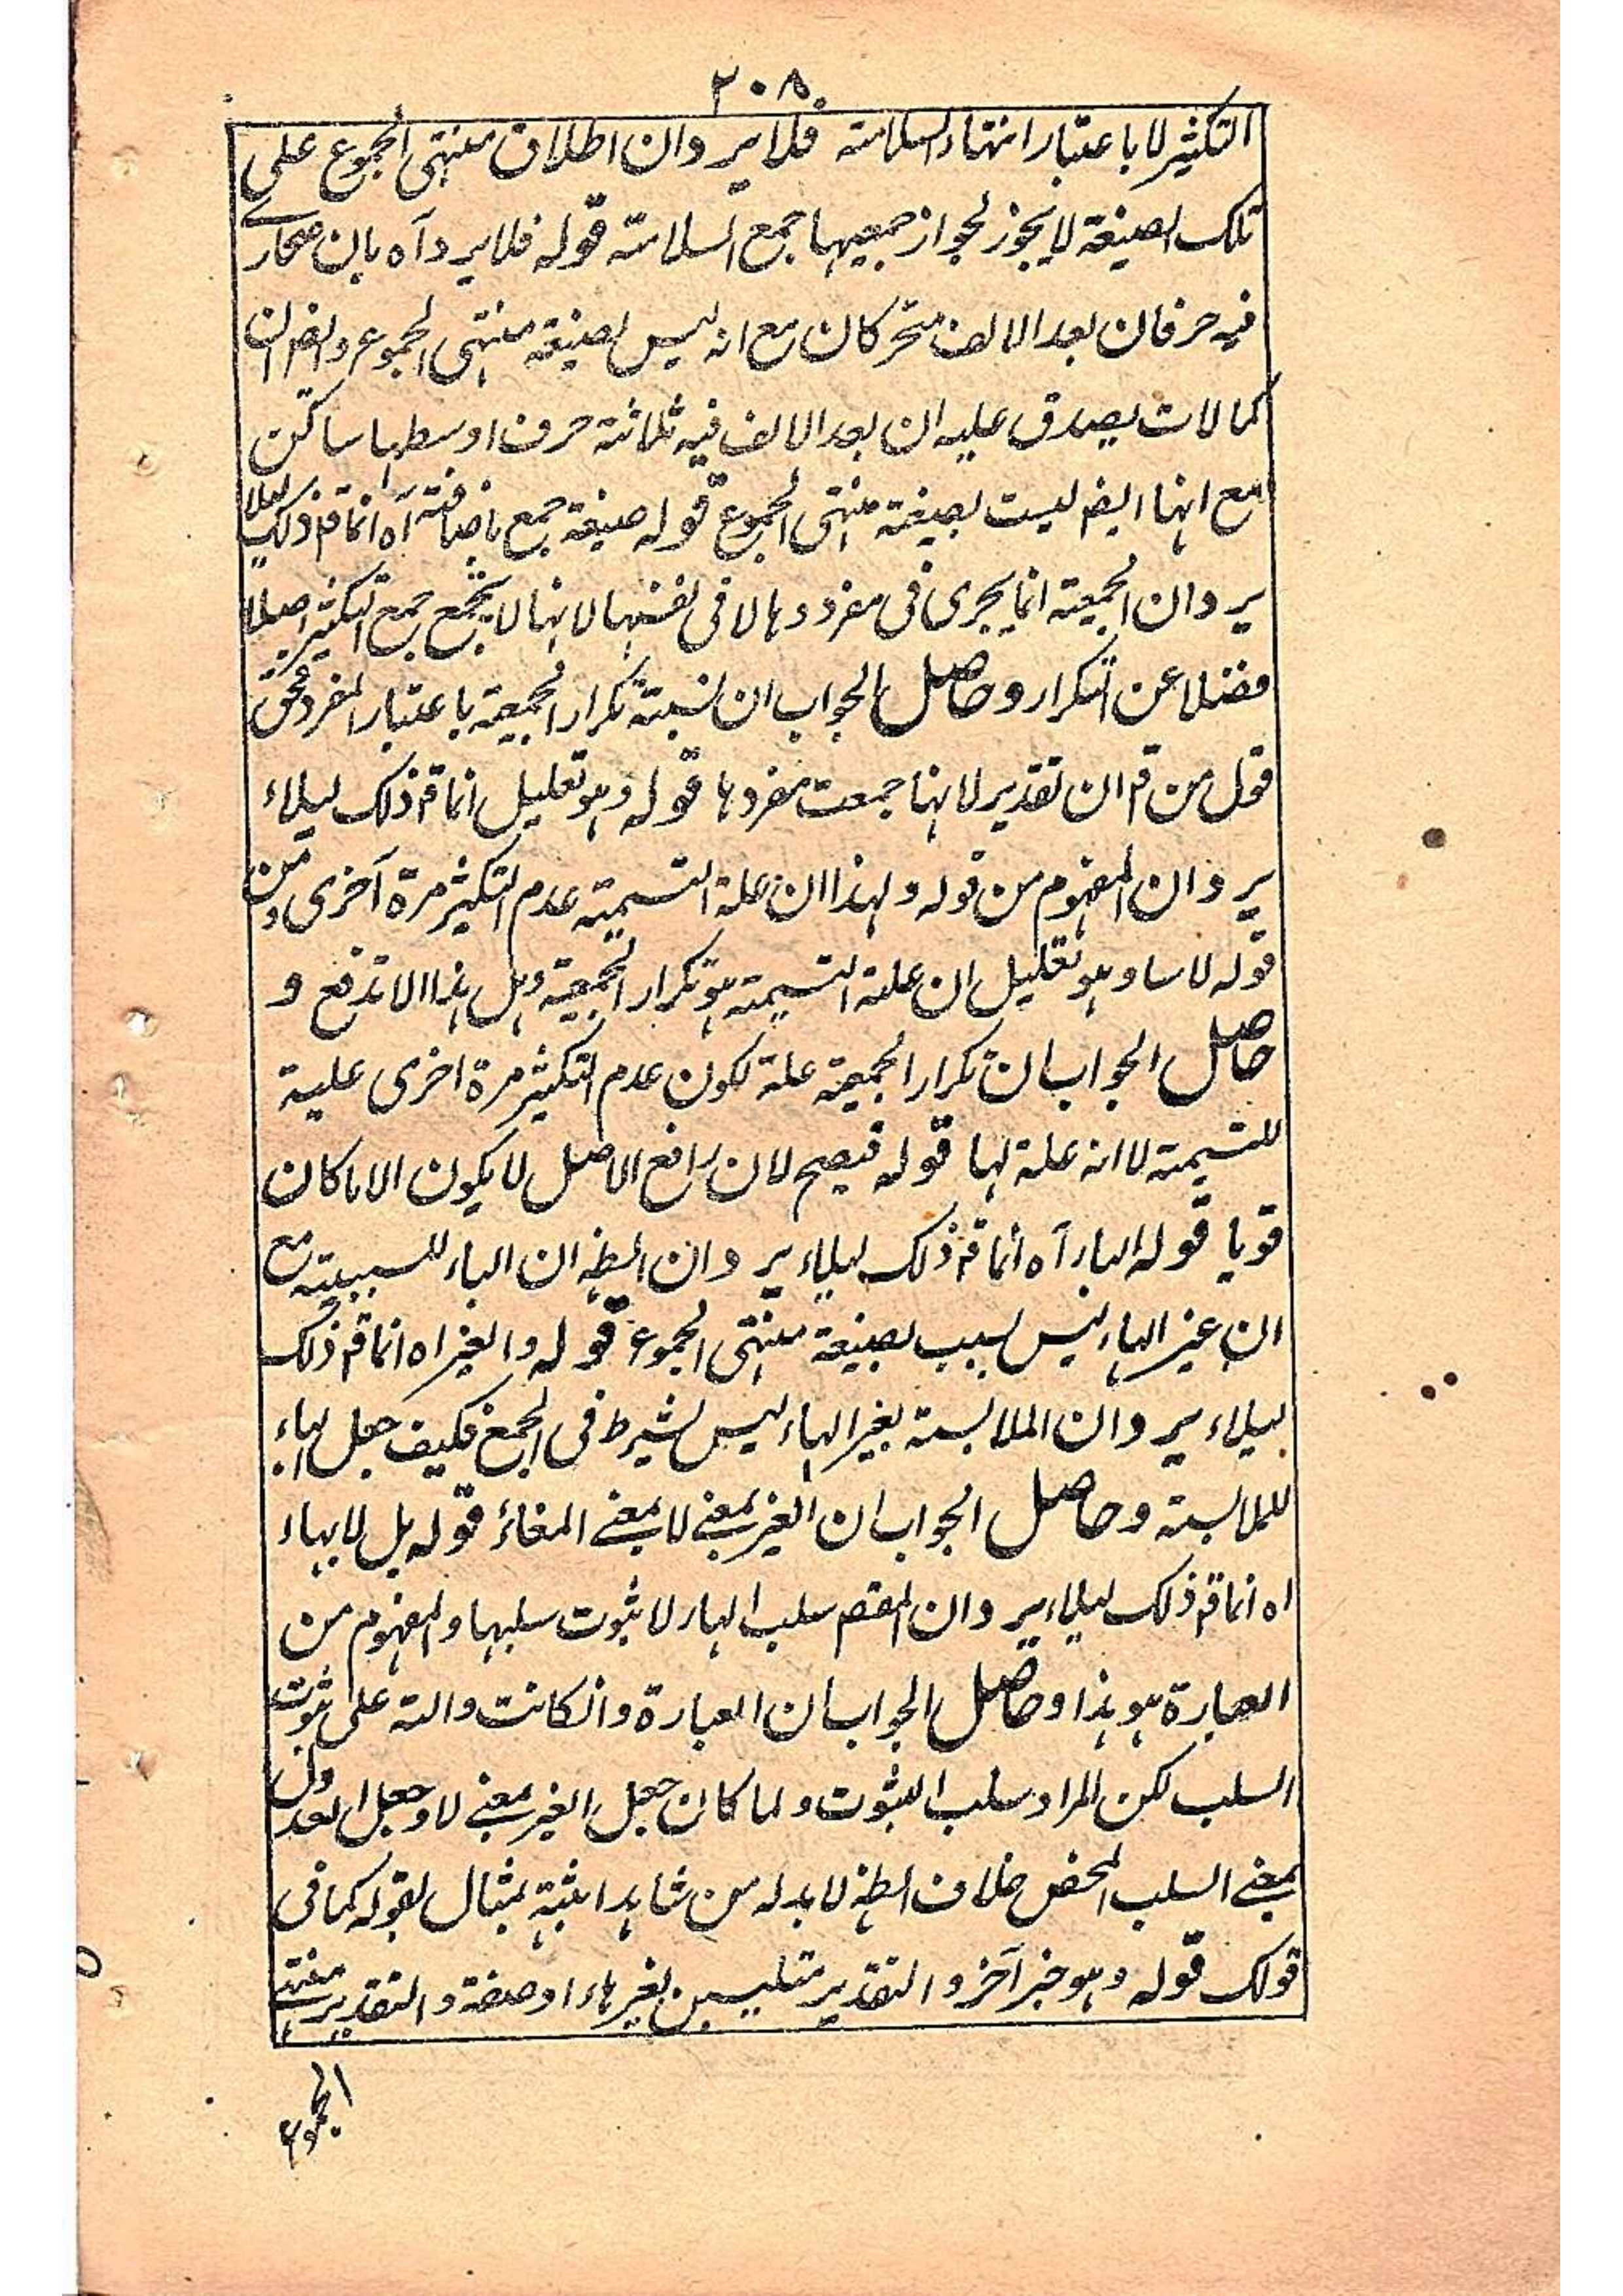 ٢٠٨
التكثير لا باعتبار انتهاء السلامة فلا يرد ان اطلاق منتهى الجموع على
تلك الصيغة لا يجوز لجواز جمعيها جمع السلامة قوله فلا يرد آه بان صحارى
فيه حرفان بعد الالف متحركان مع انه ليس بصيغة منتهى الجموع وايضا ان
كمالات يصدق عليه ان بعد الالف فيه ثلاثة حرف اوسطها ساكن
مع انها ايضا ليست بصيغة منتهى الجموع قوله صيغة جمع باضافة آه انما قم ذلك ليلا
يرد ان الجمعية انما يجرى فى مفردها لا فى نفسها لانها لا يجمع جمع التكثير اصلا
فضلا عن التكرار وحاصل الجواب ان نسبة تكرار الجمعية باعتبار المفرد فحق
قول من قم ان تقدير لانها جمعت مفردها قوله وهو تعليل انما قم ذلك ليلاء
يرد ان المفهوم من قوله ولهذا ان علة التسمية عدم التكثير مرة آخرى ومن
قوله لاسا وهو تعليل ان علة التسمية هو تكرار الجمعية وهل هذا الا تدفع و
حاصل الجواب ان تكرار الجمعية علة لكون عدم التكثير مرة اخرى علية
للتسمية لا انه علة لها قوله فيصح لان رافع الاصل لا يكون الا ما كان
قويا قوله الهار آه انما قم ذلك ليلاء يرد ان الظه ان الباء للسببية مع
ان غير الهاء ليس بسبب لصيغة منتهى الجموع قوله والغير اه انما قم ذلك
ليلاء يرد ان الملابسة بغير الهاء ليس لشيرط فى الجمع فكيف جعل الباء
للملابسة وحاصل الجواب ان الغير بمعنى لا بمعنى المغائر قوله بل لا بهاء
اه انما قم ذلك ليلاء يرد ان المقصم سلب الهار لا ثبوت سلبها والمفهوم من
العبارة هو هذا وحاصل الجواب ان العبارة وانكانت دالة على ثبوت
السلب لكن المراد سلب الثبوت ولما كان جعل الغير بمعنى لا وجعل العدول
بمعنى السلب المحض خلاف الظه لا بد له من شاهد اثبته بمثال بقوله كما فى
قولك قوله وهو خبر آخر والتقدير متلبسن بغير هاء او صفة والتقدير منتهى
الجموع